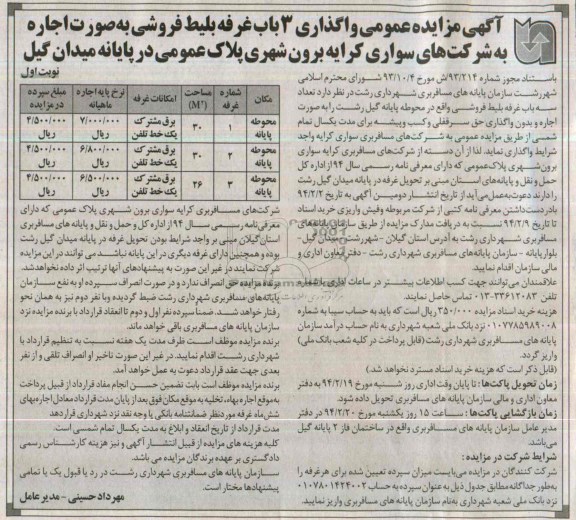 آگهی مزایده عمومی واگذاری ۳ باب غرفه بلیط فروشی به صورت اجاره
به شرکت‌های سواری کرایه برون شهری پلاک عمومی در پایانه میدان گیل
نوبت اول
باستناد مجوز شماره ۹۳/۲۱۴/ش مورخ ۹۳/۱۰/۴ شورای محترم اسلامی
شهر رشت سازمان پایانه های مسافربری شهرداری رشت در نظر دارد تعداد
سه باب غرفه بلیط فروشی واقع در محوطه پایانه گیل رشت را به صورت
اجاره و بدون واگذاری حق سرقفلی و کسب وپیشه برای مدت یکسال تمام
شمسی از طریق مزایده عمومی به شرکت‌های مسافربری کرایه سواری واجد
شرایط واگذاری نماید. لذا از آن دسته از شرکت‌های مسافربری کرایه سواری
برون شهری پلاک عمومی که دارای معرفی نامه رسمی سال ۹۴ از اداره کل
حمل و نقل و پایانه‌های استان مبنی بر تحویل غرفه در پایانه میدان گیل رشت
را دارند دعوت به‌عمل می‌آید از تاریخ انتشار دومین آگهی به تاریخ ۹۴/۲/۲
تا تاریخ ۹۴/۲/۹ نسبت به دریافت مدارک مزایده از طریق سازمان پایانه‌های
مسافربری شهرداری رشت به آدرس استان گیلان - شهر رشت - میدان گیل -
بلوار پایانه - سازمان پایانه‌های مسافربری شهرداری رشت - دفتر معاون اداری و
مالی سازمان اقدام نمایید.
علاقمندان می‌توانند جهت کسب اطلاعات بیشتر در ساعات اداری با شماره
تلفن ۳۳۶۱۲۰۸۳-۰۱۳ تماس حاصل نمایند.
هزینه خرید اسناد مزایده ۳۵۰/۰۰۰ ریال است که باید به حساب سیبا به شماره
۰۱۰۷۷۸۵۹۸۹۰۰۸ نزد بانک ملی شعبه شهرداری به نام حساب درآمد سازمان
پایانه های مسافربری شهرداری رشت (قابل پرداخت در کلیه شعب بانک ملی)
واریز گردد.
(قابل ذکر است که هزینه خرید اسناد مسترد نخواهد شد.)
زمان تحویل پاکت‌ها : تا پایان وقت اداری روز شنبه مورخ ۹۴/۲/۱۹ به دفتر
معاون اداری و مالی سازمان پایانه های مسافربری تحویل داده شود
زمان بازگشایی پاکت‌ها : ساعت ۱۵ روز یکشنبه مورخ ۹۴/۲/۲۰ در دفتر
مدیر عامل سازمان پایانه های مسافربری واقع در ساختمان فاز ۲ پایانه گیل
می‌باشد.
شرایط شرکت در مزایده :
شرکت کنندگان در مزایده می‌بایست میزان سپرده تعیین شده برای هر غرفه را
به‌طور جداگانه مطابق جدول ذیل به عنوان سپرده به حساب ۰۱۰۷۸۰۱۴۲۴۰۰۲
نزد بانک ملی شعبه شهرداری به‌نام سازمان پایانه های مسافربری واریز نمایید.
مکان | شماره غرفه | مساحت (M²) | امکانات غرفه | نرخ پایه اجاره ماهیانه | مبلغ سپرده در مزایده
محوطه پایانه | ۱ | ۳۰ | برق مشترک یک خط تلفن | ۷/۰۰۰/۰۰۰ ریال | ۴/۵۰۰/۰۰۰ ریال
محوطه پایانه | ۲ | ۳۰ | برق مشترک یک خط تلفن | ۶/۸۰۰/۰۰۰ ریال | ۴/۵۰۰/۰۰۰ ریال
محوطه پایانه | ۳ | ۲۶ | برق مشترک یک خط تلفن | ۶/۵۰۰/۰۰۰ ریال | ۴/۵۰۰/۰۰۰ ریال
شرکت‌های مسافربری کرایه سواری برون شهری پلاک عمومی که دارای
معرفی نامه رسمی سال ۹۴ از اداره کل و حمل و نقل و پایانه های مسافربری
استان گیلان مبنی بر واجد شرایط بودن تحویل غرفه در پایانه میدان گیل رشت
بوده و همچنین دارای غرفه دیگری در این پایانه نباشد می توانند در این مزایده
شرکت نمایند در غیر این صورت به پیشنهادهای آنها ترتیب اثر داده نخواهد شد.
حق انصراف ندارد و در صورت انصراف سپرده او به نفع سازمان
پایانه‌های مسافربری شهرداری رشت ضبط گردیده وبا نفر دوم نیز به همان نحو
رفتار خواهد شد. ضمنا سپرده نفر اول و دوم تا انعقاد قرارداد با برنده مزایده نزد
سازمان پایانه های مسافربری باقی خواهد ماند.
برنده مزایده موظف است ظرف مدت یک هفته نسبت به تنظیم قرارداد با
شهرداری رشت اقدام نمایید. در غیر این صورت تاخیر او انصراف تلقی و از نفر
بعدی جهت عقد قرارداد دعوت به عمل خواهد آمد.
برنده مزایده موظف است بابت تضمین حسن انجام مفاد قرارداد از قبیل پرداخت
به موقع اجاره بهاء، تخلیه به موقع مکان فوق بعد از پایان مدت قرارداد معادل اجاره بهای
شش ماه غرفه مورد نظر ضمانتنامه بانکی یا وجه نقد نزد شهرداری قرار دهد
مدت قرارداد از تاریخ انعقاد و ابلاغ به مدت یکسال تمام شمسی است.
کلیه هزینه های مزایده از قبیل انتشار آگهی و نیز هزینه کارشناس رسمی
دادگستری بر عهده برندگان مزایده می باشد.
سازمان پایانه های مسافربری شهرداری رشت در رد یا قبول یک یا تمامی
پیشنهادها مختار است.
مهرداد حسینی - مدیر عامل